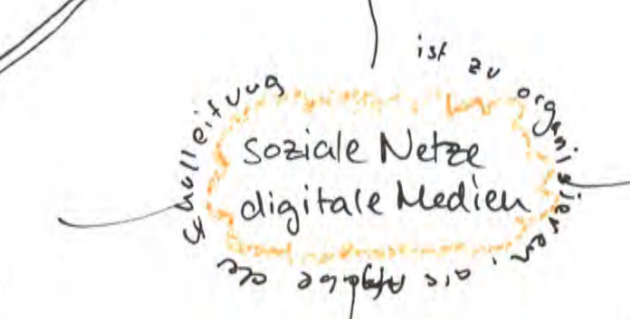 soziale Netze
digitale Medien
ist zu organisieren, als Afgabe de
Schulleitung